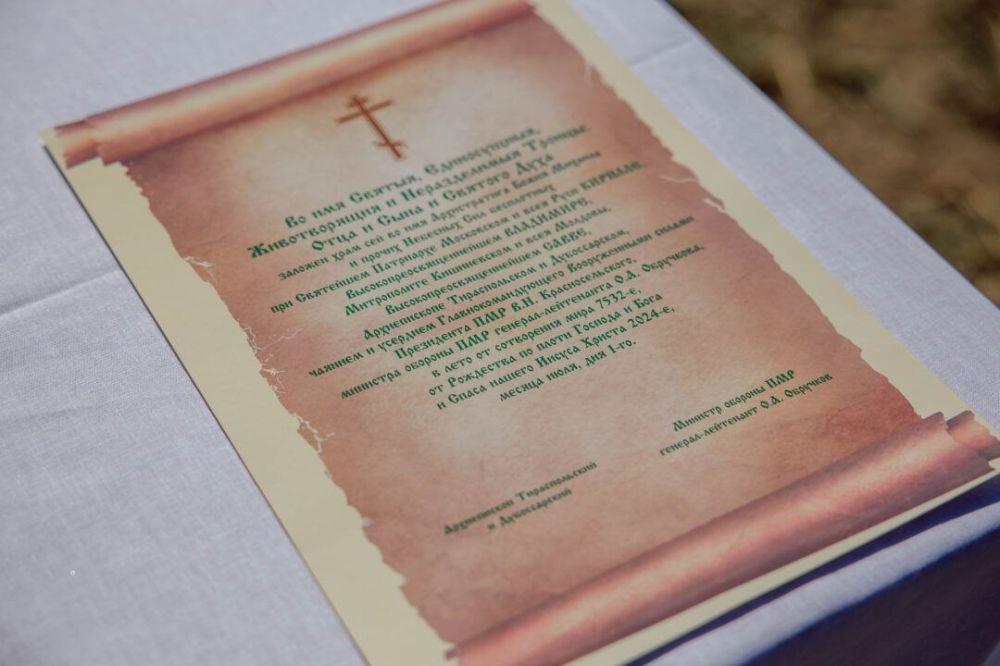 Во имя Святыя, Единосущныя,
Животворящия и Нераздельныя Троицы:
Отца и Сына и Святого Духа
заложен храм сей во имя Архистратига Божия Михаила
и прочих Небесных Сил бесплотных
при Святейшем Патриархе Московском и всея Руси КИРИЛЛЕ,
Высокопреосвященнейшем ВЛАДИМИРЕ,
Митрополите Кишиневском и всея Молдовы,
Высокопреосвященнейшем САВВЕ,
Архиепископе Тираспольском и Дубоссарском,
чаянием и усердием Главнокомандующего Вооруженными силами
Президента ПМР В.Н. Красносельского,
министра обороны ПМР генерал-лейтенанта О.А. Обручкова,
в лето от сотворения мира 7532-е,
от Рождества по плоти Господа и Бога
и Спаса нашего Иисуса Христа 2024-е,
месяца июля, дня 1-го.
Министр обороны ПМР
генерал-лейтенант О.А. Обручков
Архиепископ Тираспольский
и Дубоссарский